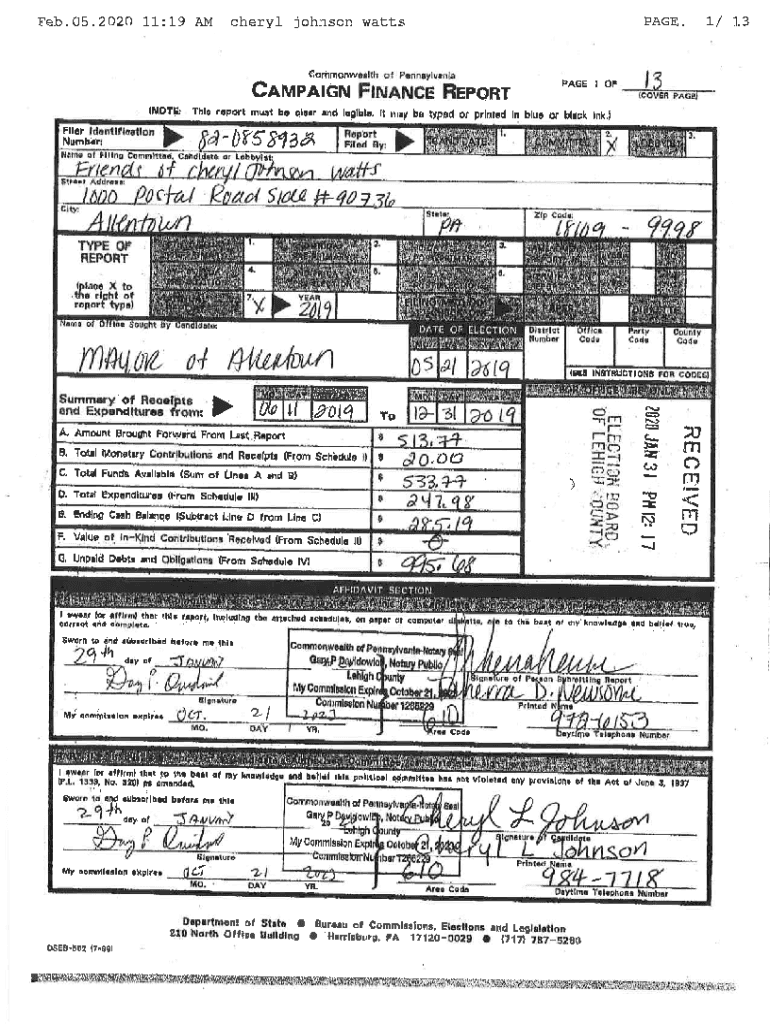 Feb.05.2020 11:19 AM cheryl johnson watts PAGE. 1/ 13
Commonwealth of Pennsylvania
CAMPAIGN FINANCE REPORT
PAGE 1 OF 13
(COVER PAGE)
(NOTE: This report must be clear and legible. It may be typed or printed in blue or black ink.)
Filer Identification Number: 82-0858932 Report Filed By: 1. CANDIDATE 2. COMMITTEE X 3. LOBBYIST
Name of Filing Committee, Candidate or Lobbyist:
Friends of cheryl Johnson Watts
Street Address:
1000 Postal Road Side # 90736
City: Allentown State: PA Zip Code: 18109 - 9998
TYPE OF REPORT
(place X to the right of report type)
1. 2. 3.
4. 5. 6.
7. X YEAR 2019
Name of Office Sought by Candidate:
MAYOR of Allentown
DATE OF ELECTION
05 21 2019
District Number Office Code Party Code County Code
(SEE INSTRUCTIONS FOR CODES)
Summary of Receipts and Expenditures from: 06 11 2019 To 12 31 2019
A. Amount Brought Forward From Last Report $ 513.77
B. Total Monetary Contributions and Receipts (From Schedule I) $ 20.00
C. Total Funds Available (Sum of Lines A and B) $ 533.77
D. Total Expenditures (From Schedule III) $ 247.98
E. Ending Cash Balance (Subtract Line D from Line C) $ 285.19
F. Value of In-Kind Contributions Received (From Schedule II) $ 0
G. Unpaid Debts and Obligations (From Schedule IV) $ 995.68
RECEIVED
2020 JAN 31 PM 12: 17
ELECTION BOARD
OF LEHIGH COUNTY
AFFIDAVIT SECTION
I swear (or affirm) that this report, including the attached schedules, on paper or computer diskette, are to the best of my knowledge and belief true, correct and complete.
Sworn to and subscribed before me this
29th day of January
Signature
My commission expires Oct. 21 2023
MO. DAY YR.
Commonwealth of Pennsylvania-Notary Seal
Gary P Davidowich, Notary Public
Lehigh County
My Commission Expires October 21,
Commission Number 1266229
Signature of Person Submitting Report
Sherra D. Newsome
Printed Name
610 972-6153
Area Code Daytime Telephone Number
I swear (or affirm) that to the best of my knowledge and belief this political committee has not violated any provisions of the Act of June 3, 1937
(P.L. 1333, No. 320) as amended.
Sworn to and subscribed before me this
29th day of January 20
Signature
My commission expires Oct 21 2023
MO. DAY YR.
Commonwealth of Pennsylvania-Notary Seal
Gary P Davidowich, Notary Public
Lehigh County
My Commission Expires October 21,
Commission Number 1266229
Cheryl L Johnson
Signature of Candidate
Cheryl L. Johnson
Printed Name
610 984-7718
Area Code Daytime Telephone Number
Department of State ● Bureau of Commissions, Elections and Legislation
210 North Office Building ● Harrisburg, PA 17120-0029 ● (717) 787-5280
DSEB-502 (7-99)